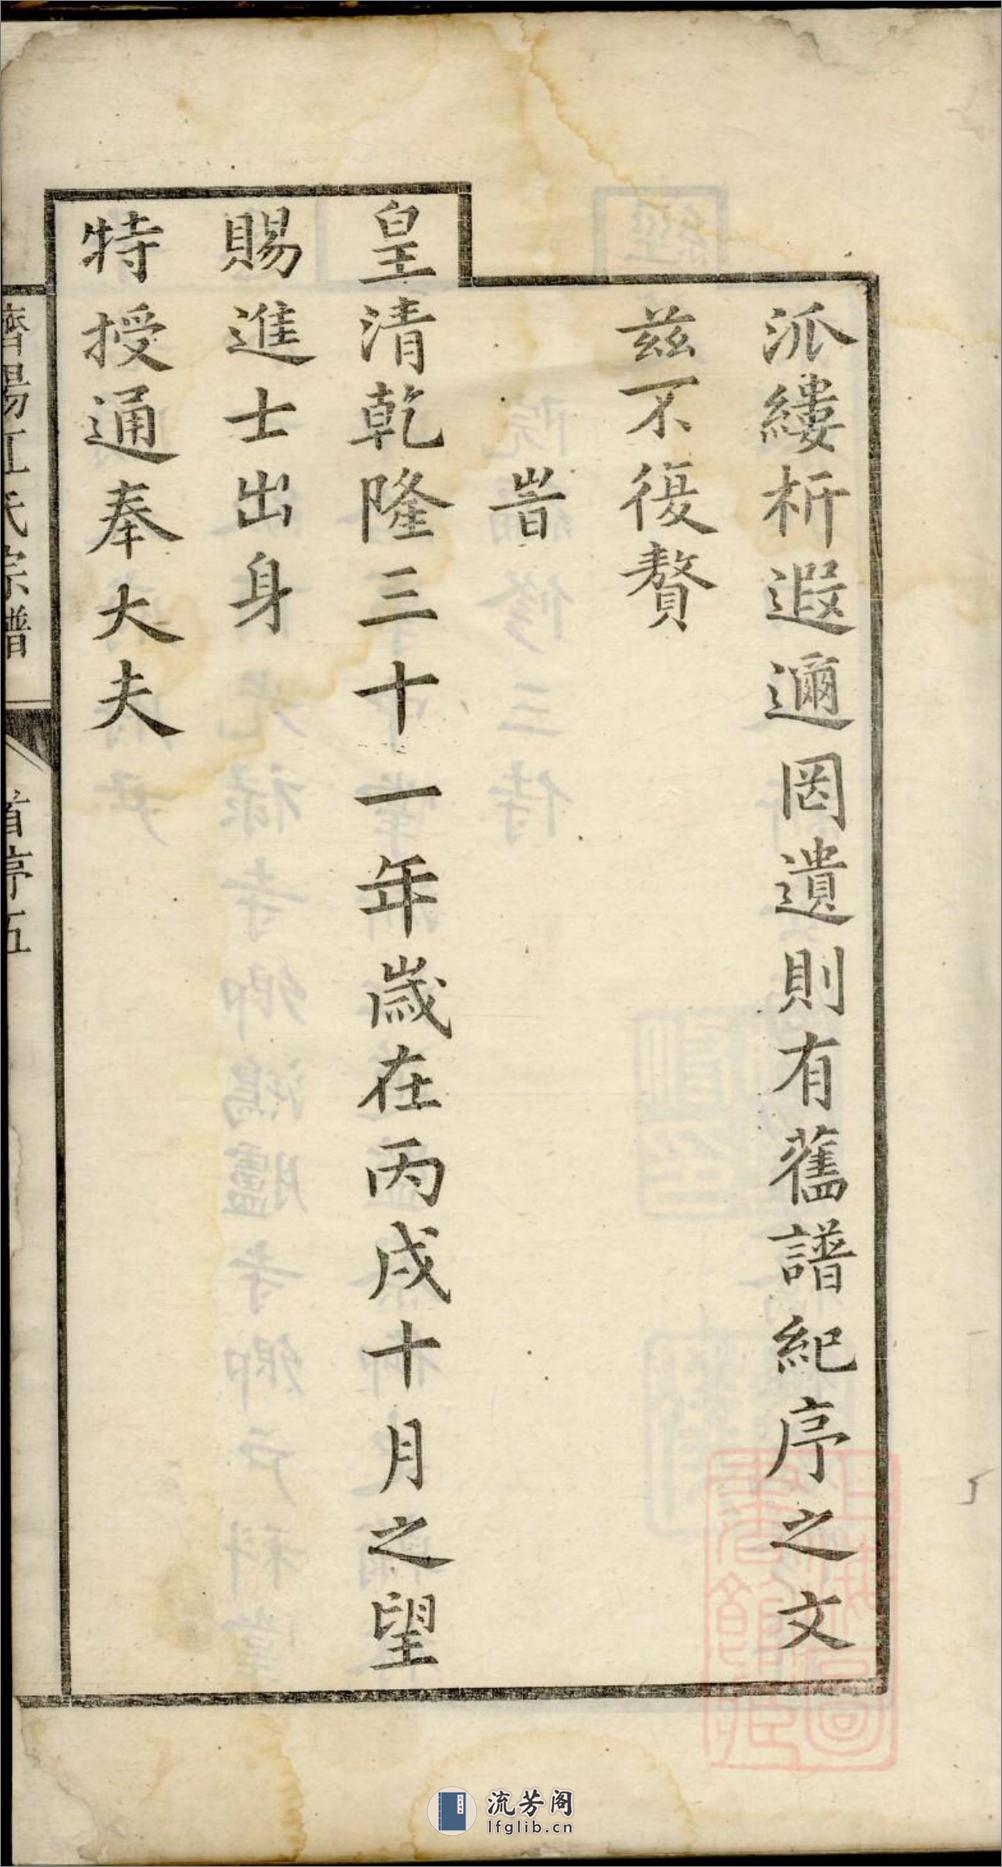 派縷析遐邇罔遺則有舊譜紀序之文
茲不復贅
旹
皇清乾隆三十一年歲在丙戌十月之望
賜進士出身
特授通奉大夫
濟陽江氏宗譜
首序五
流芳阁
lfglib.cn